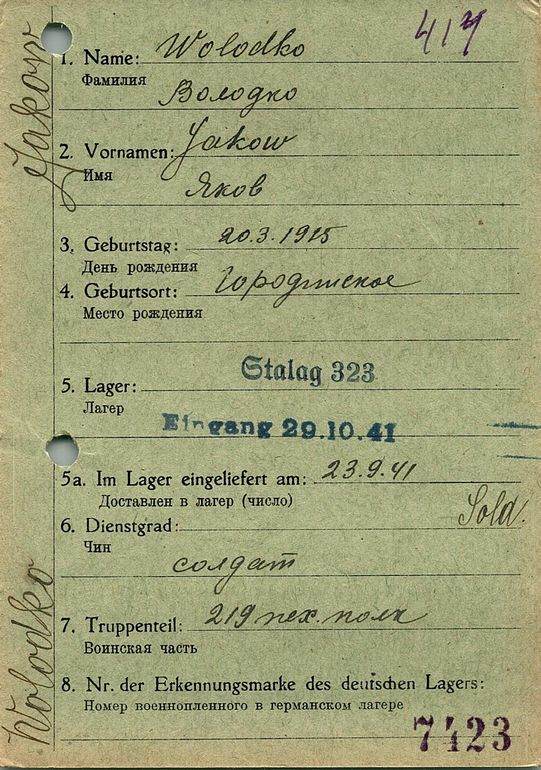 417
1. Name: Wolodko
Фамилия
Володко
2. Vornamen: Jakow
Имя
Яков
3. Geburtstag: 20.3.1915
День рождения
4. Geburtsort:
Место рождения
Stalag 323
5. Lager:
Лагер
Eingang 29.10.41
5a. Im Lager eingeliefert am: 23.9.41
Доставлен в лагер (число)
6. Dienstgrad: Sold.
Чин
солдат
7. Truppenteil: 219 пех. полк
Воинская часть
8. Nr. der Erkennungsmarke des deutschen Lagers:
Номер военнопленного в германском лагере
7423
Wolodko Jakow